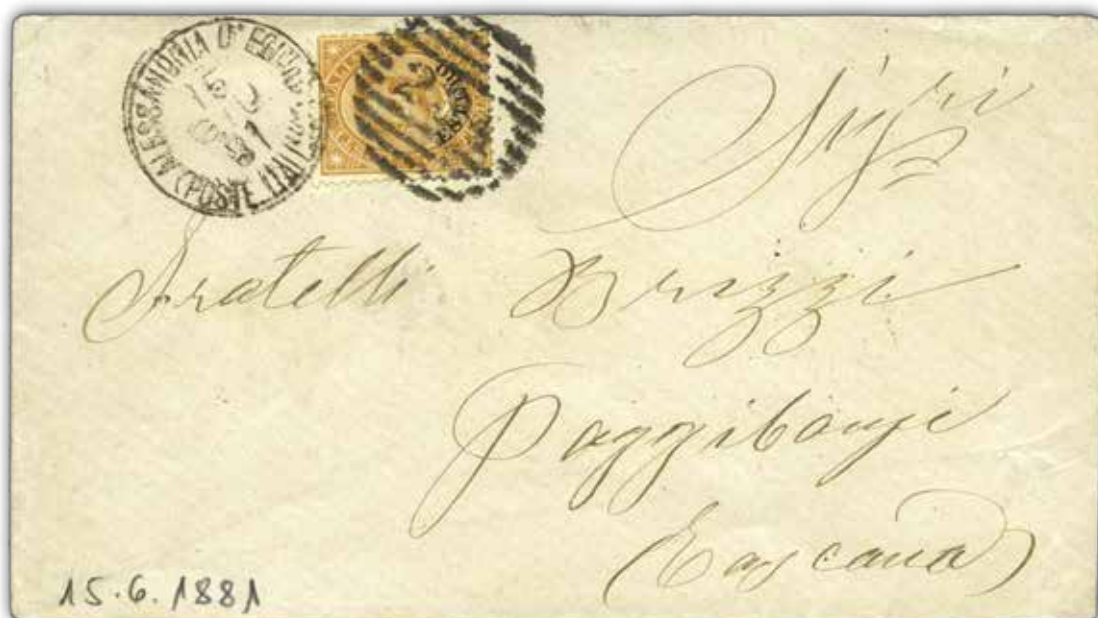 ALESSANDRIA D'EGITTO
(POSTE ITALIANE)
ESTERO
Sig.ri
Fratelli Brizzi
Poggibonsi
(Toscana)
15.6.1881